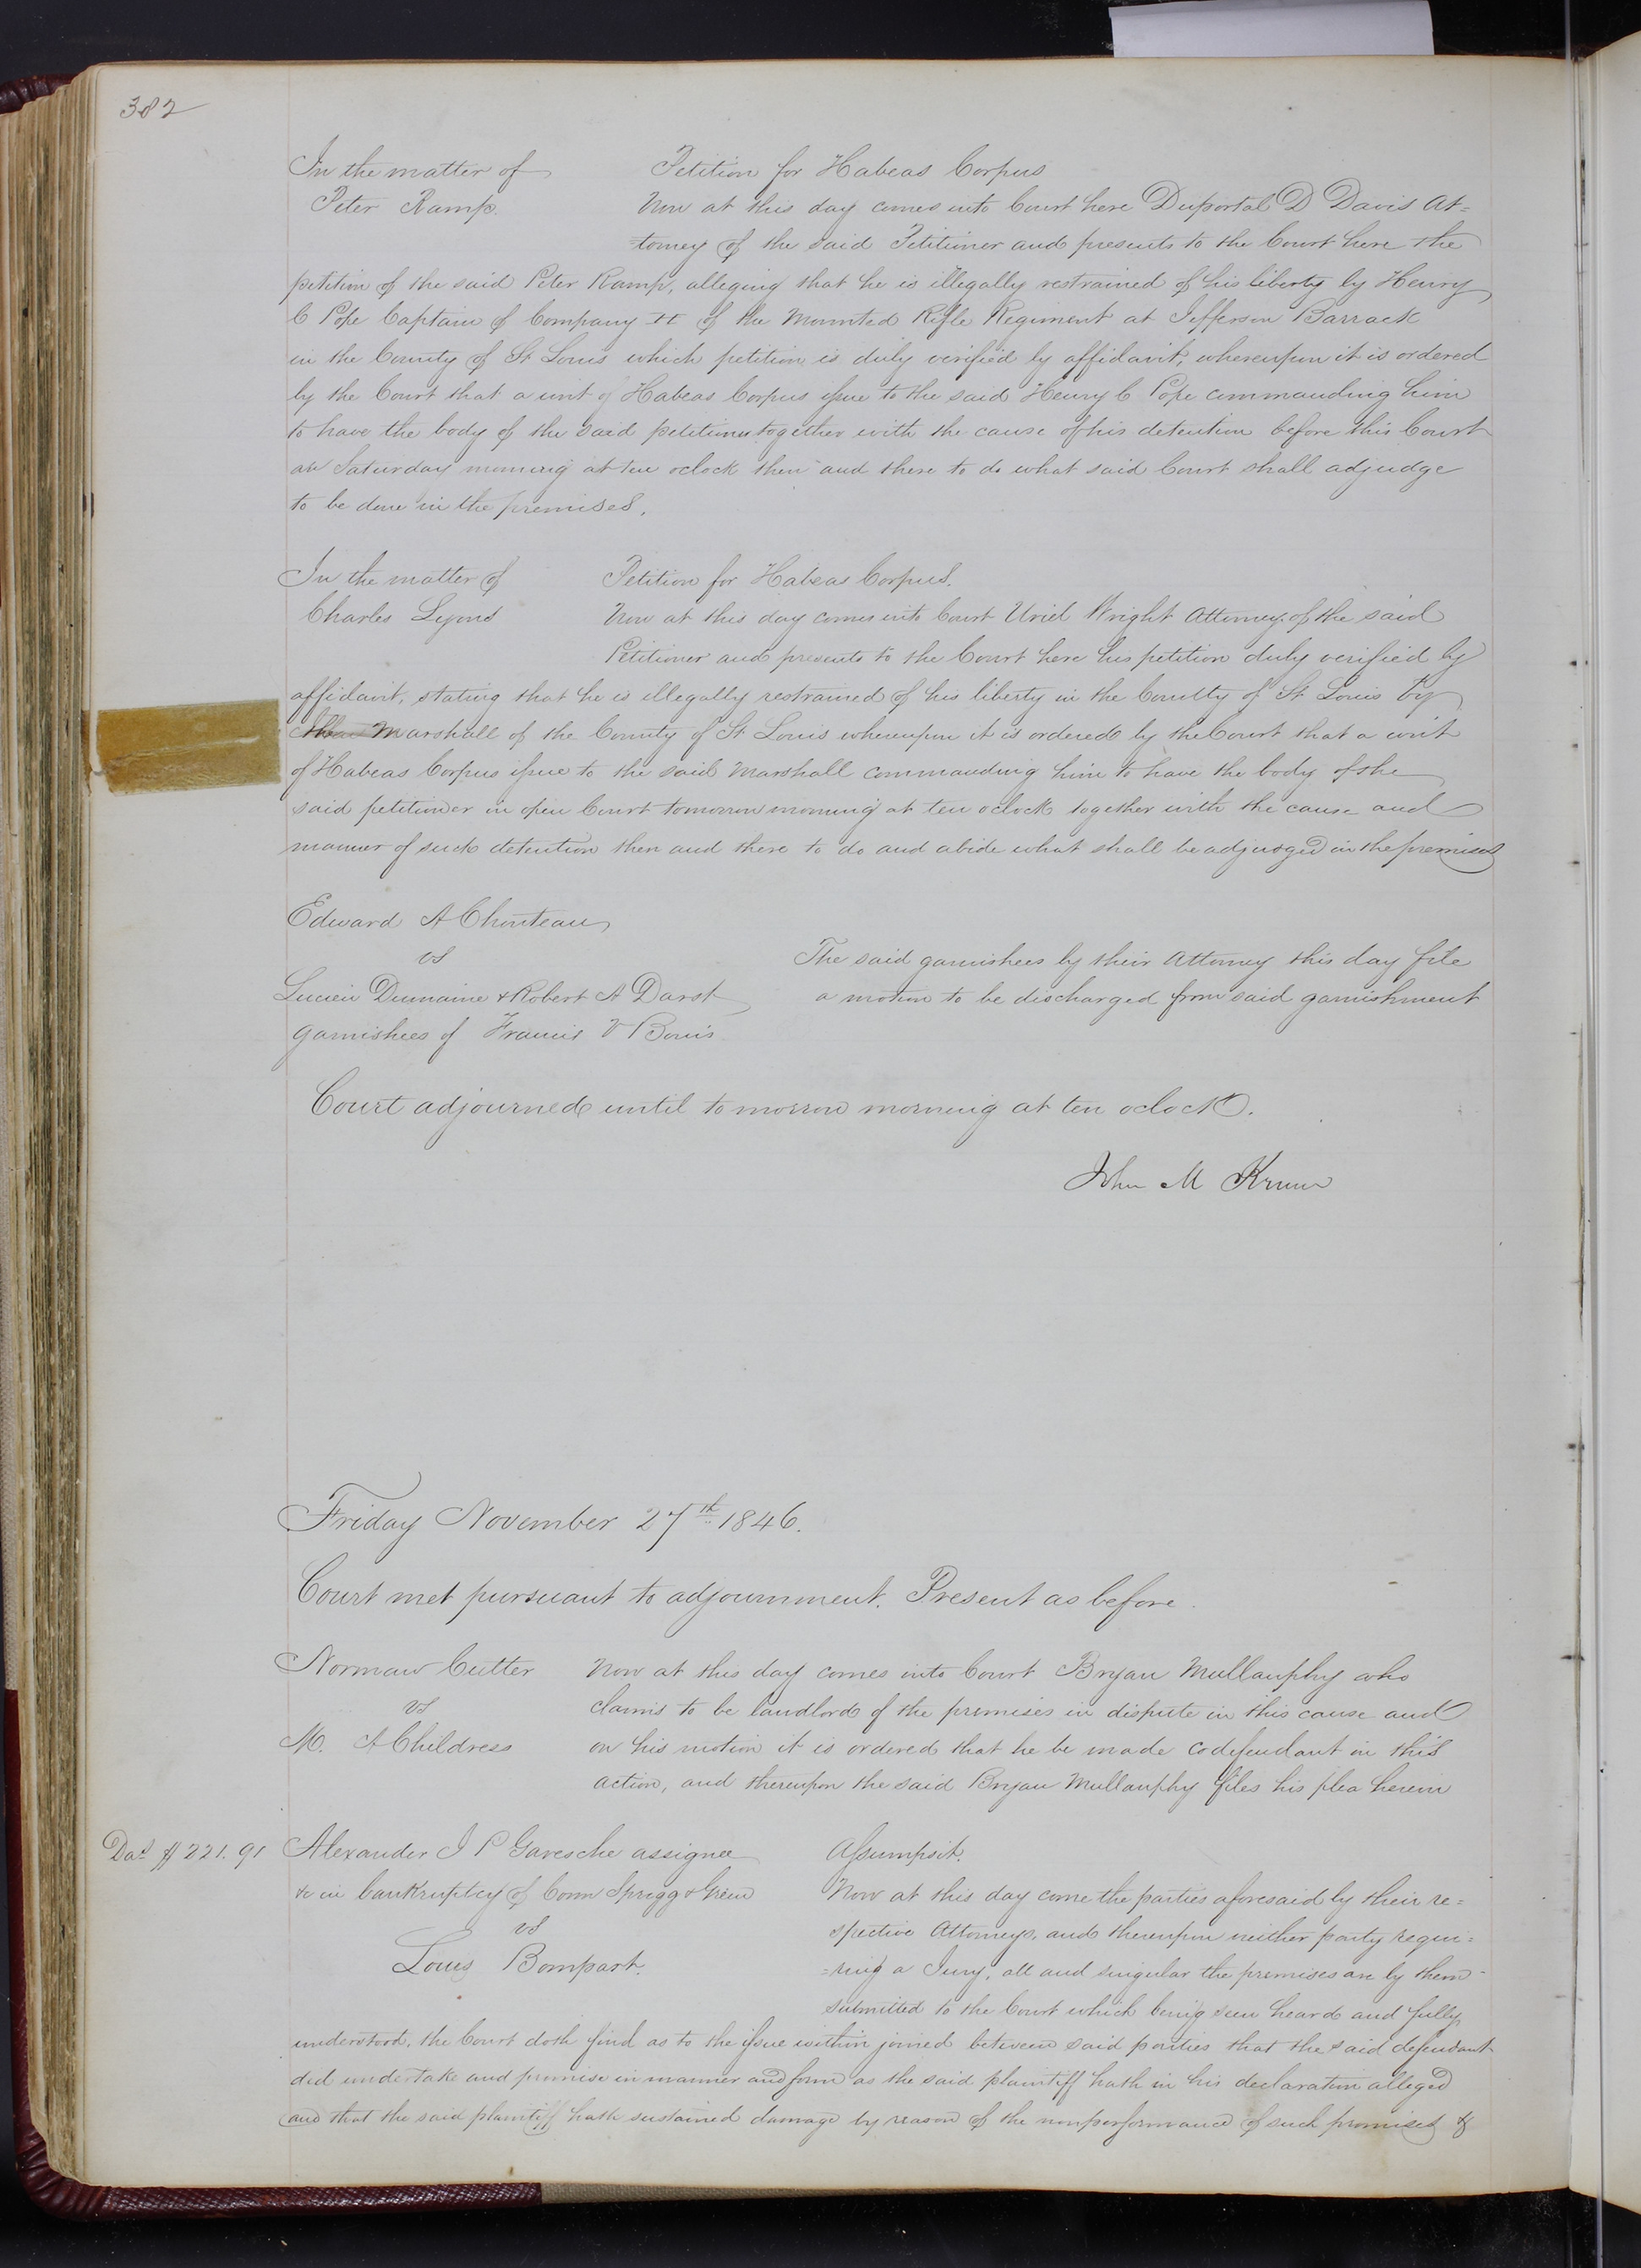 382
In the matter of Petition for Habeas Corpus
Peter Ramp. Now at this day comes into Court here Duportal D Davis At=
=torney of the said Petitioner and presents to the Court here the
petition of the said Peter Ramp, alleging that he is illegally restrained of his liberty by Henry
C Pope Captain of Company H of the Mounted Rifle Regiment at Jefferson Barrack
in the County of St Louis which petition is duly verified by affidavit, whereupon it is ordered
by the Court that a writ of Habeas Corpus issue to the said Henry C Pope commanding him
to have the body of the said petitioner together with the cause of his detention before this Court
on Saturday morning at ten oclock then and there to do what said Court shall adjudge
to be done in the premises.
In the matter of Petition for Habeas Corpus.
Charles Lyons Now at this day comes into Court Uriel Wright Attorney of the said
Petitioner and presents to the Court here his petition duly verified by
affidavit, stating that he is illegally restrained of his liberty in the County of St Louis by
the Marshall of the County of St Louis whereupon it is ordered by the Court that a writ
of Habeas Corpus issue to the said Marshall commanding him to have the body of the
said petitioner in open Court tomorrow morning at ten oclock together with the cause and
manner of such detention then and there to do and abide what shall be adjudged in the premises
Edward A Chouteau
vs The said garnishees by their Attorney this day file
Lucien Dumaine & Robert A Darst a motion to be discharged from said garnishment
garnishees of Francis V Bouis
Court adjourned until tomorrow morning at ten oclock.
John M Krum
Friday November 27th 1846.
Court met pursuant to adjournment. Present as before.
Norman Cutter Now at this day comes into Court Bryan Mullanphy who
vs claims to be landlord of the premises in dispute in this cause and
M. A Childress on his motion it is ordered that he be made codefendant in this
action, and thereupon the said Bryan Mullanphy files his plea herein
Das $221.91 Alexander J P Garesche assignee Assumpsit.
&c in bankruptcy of Conn Sprigg & Green Now at this day come the parties aforesaid by their re=
vs spective Attorneys, and thereupon neither party requi=
Louis Bompart. =ring a Jury, all and singular the premises are by them
submitted to the Court which being seen heard and fully
understood, the Court doth find as to the issue within joined between said parties that the said defendant
did undertake and promise in manner and form as the said plaintiff hath in his declaration alleged
and that the said plaintiff hath sustained damage by reason of the nonperformance of such promises &